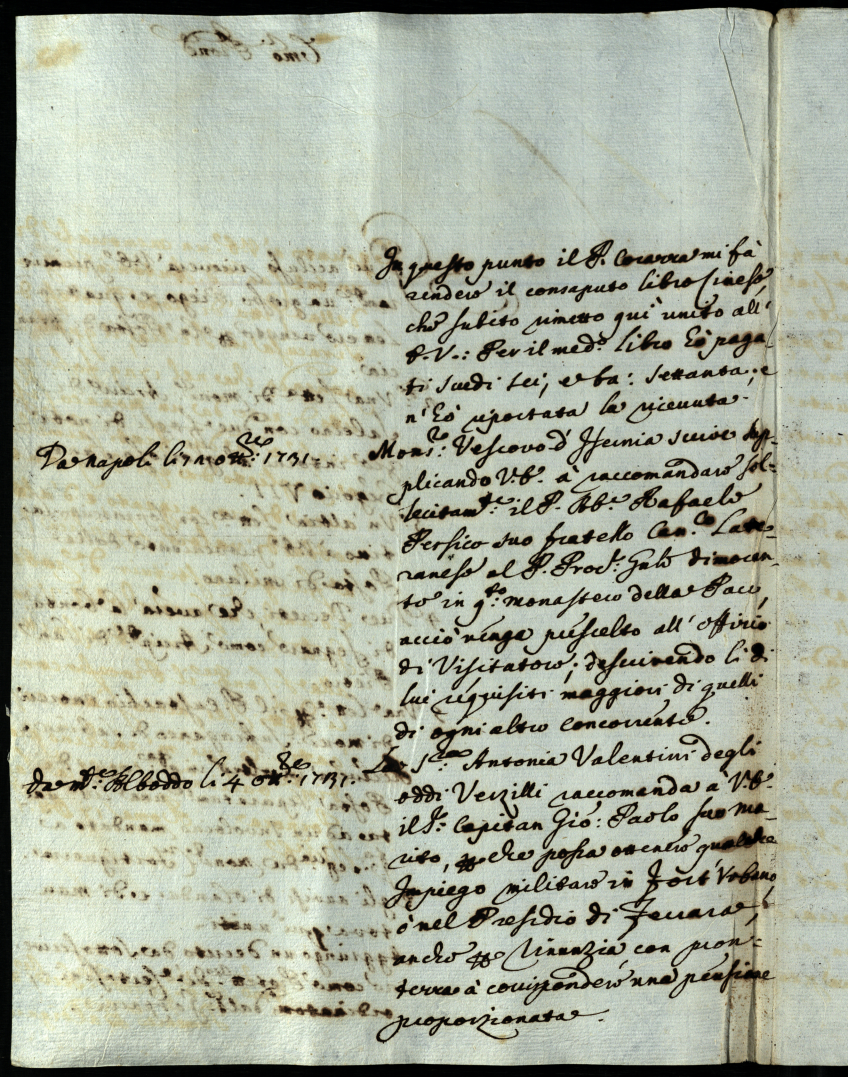 In questo punto il P. Cocarra mi fà
rendere il consaputo libro Cinese,
che subito rimetto quì unito all'
E. V.: Per il med.º libro hò paga-
ti scudi sei, e ba: settanta; e
n'hò riportata la ricevuta.
Da Napoli li 7bre 1731.
Mons.r Vescovo d'Isernia scrive sup-
plicando V. E. à raccomandare sol-
lecitam.te il P. Ab.e Rafaele
Persico suo fratello Can.co Late-
ranese al P. Proc.r Gnle dimoran-
te in q.to monastero della Pace,
acciò venga prescelto all'offizio
di Visitatore; descrivendo li di
lui requisiti maggiori di quelli
di ogni altro concorrente.
Da M.te Alboddo li 4 Ottbre 1731.
La S.ra Antonia Valentini degli
Oddi Verzilli raccomanda à V. E.
il S.r Capitan Gio: Paolo suo ma-
rito, che possa ottenere qualche
Impiego militare in Fort'Urbano,
ò nel Presidio di Ferrara,
anche rinunzia, con pron-
tezza à corrispondere una pensione
proporzionata.